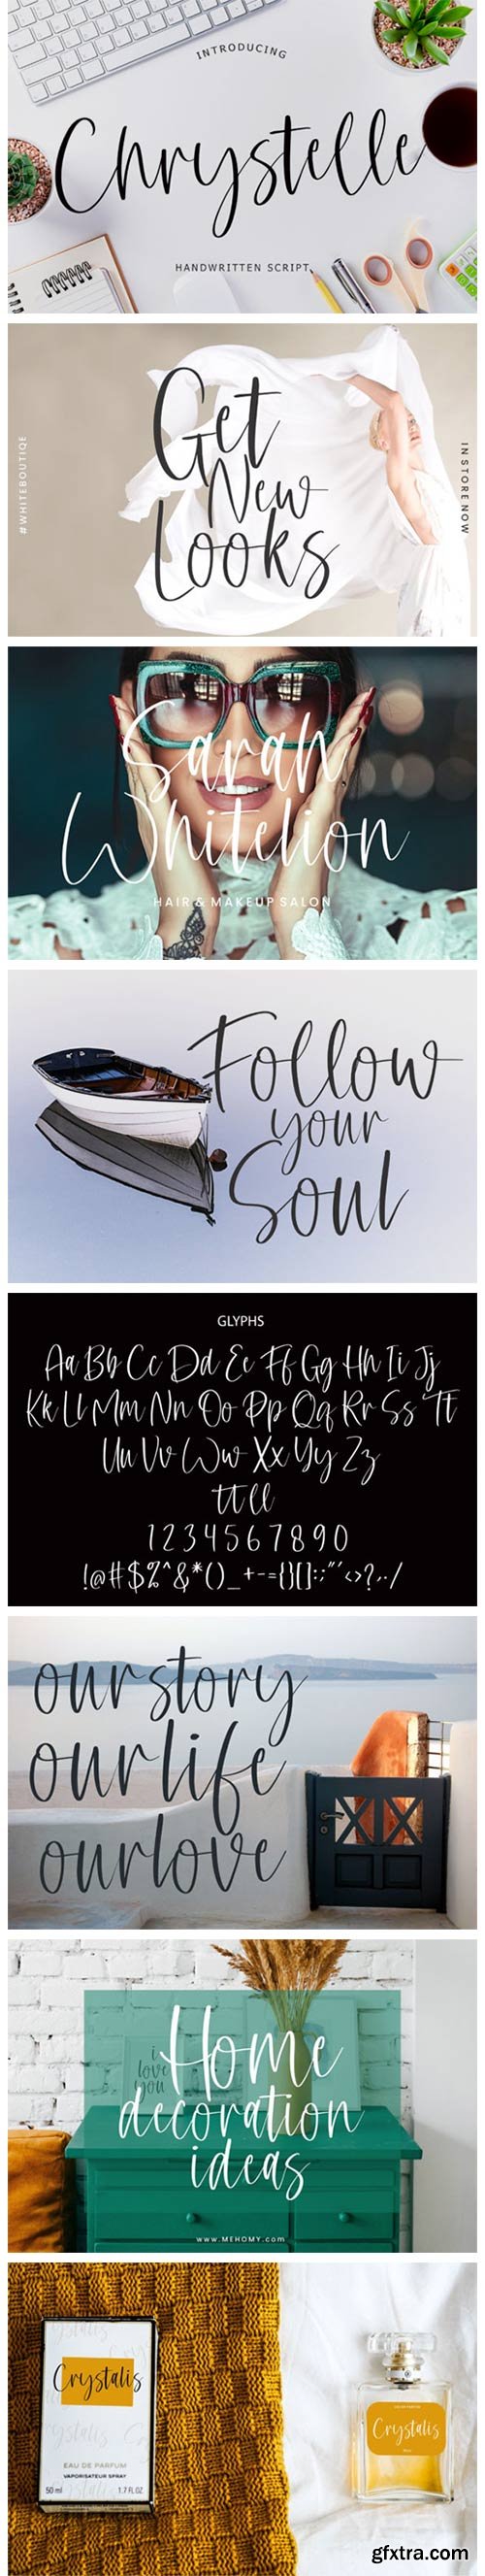 INTRODUCING
Chrystelle
HANDWRITTEN SCRIPT
#WHITEBOUTIQE
Get
New
Looks
IN STORE NOW
Sarah
Whitelion
HAIR & MAKEUP SALON
Follow
your
Soul
GLYPHS
Aa Bb Cc Dd Ee Ff Gg Hh Ii Jj
Kk Ll Mm Nn Oo Pp Qq Rr Ss Tt
Uu Vv Ww Xx Yy Zz
tt ll
1 2 3 4 5 6 7 8 9 0
!@#$%^&*()_+-={}[]:;"'<>?,./
our story
our life
our love
i
love
you
Home
decoration
ideas
www.MEHOMY.com
Crystalis
EAU DE PARFUM
VAPORISATEUR SPRAY
50 ml 1.7 FL.OZ
Crystalis
gfxtra.com